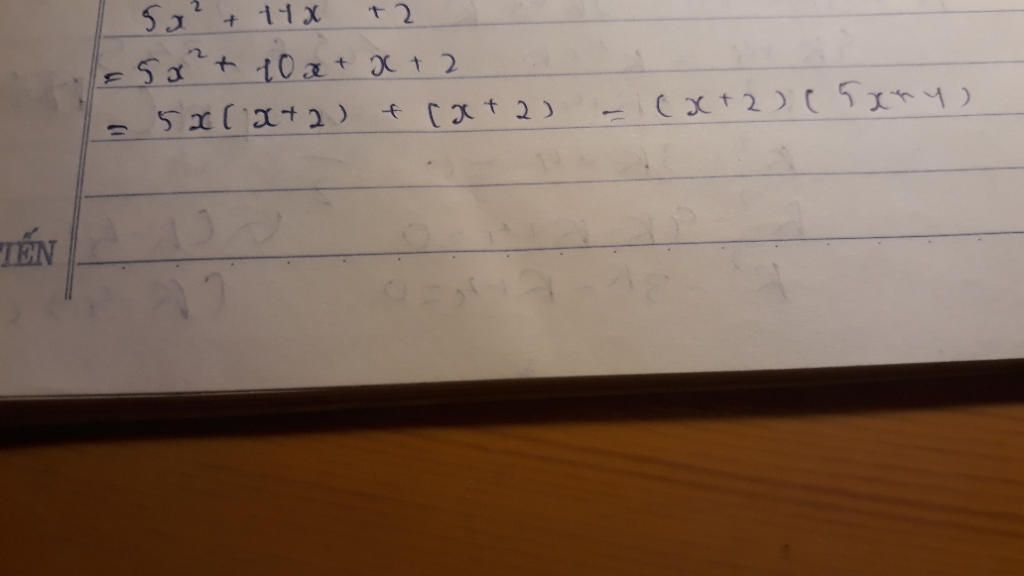 5x² + 11x + 2
= 5x² + 10x + x + 2
= 5x(x+2) + (x+2) = (x+2)(5x+1)
TIẾN